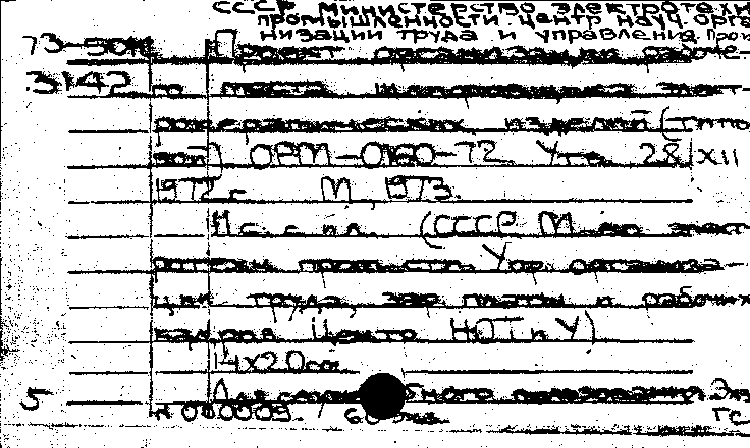 СССР Министерство электротехни
промышленности. Центр науч. орга
низации труда и управления. Прои
73-50М Проект организации рабоче-
3142 го места шлифовщика элект-
рокерамических изделий (типо
вой) ОРМ-0160-72 Утв. 28/XII
1972 г. М, 1973.
с ил. (СССР. М-во элект-
ротехн. пром-сти. Упр. организа-
ции труда, зар. платы и рабочих
кадров. Центр НОТ и У)
14х20 см.
5 Для служебного пользования. Экз
№ 000009. 60 экз.